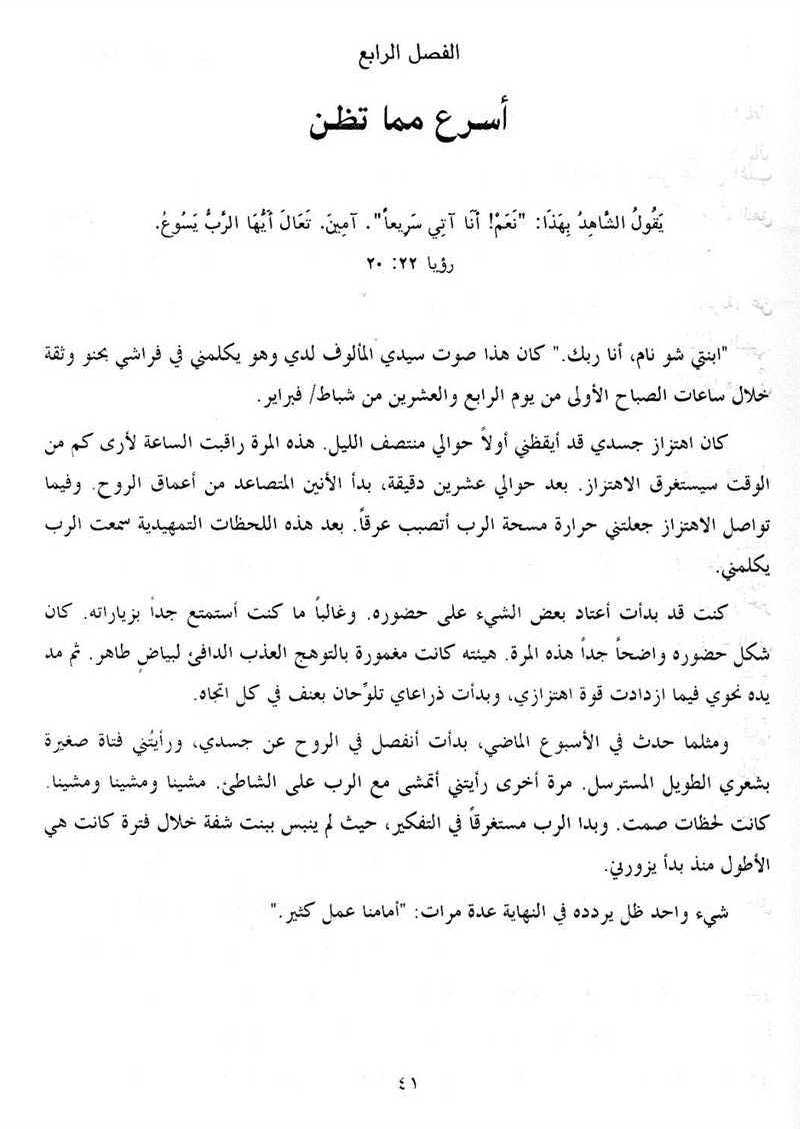 الفصل الرابع
أسرع مما تظن
يَقُولُ الشَّاهِدُ بِهَذَا: "نَعَمْ! أَنَا آتِي سَرِيعاً". آمِينَ. تَعَالَ أَيُّهَا الرَّبُّ يَسُوعُ.
رؤيا ٢٢: ٢٠
"ابنتي شو نام، أنا ربك." كان هذا صوت سيدي المألوف لدي وهو يكلمني في فراشي بحنو وثقة
خلال ساعات الصباح الأولى من يوم الرابع والعشرين من شباط/ فبراير.
كان اهتزاز جسدي قد أيقظني أولاً حوالي منتصف الليل. هذه المرة راقبت الساعة لأرى كم من
الوقت سيستغرق الاهتزاز. بعد حوالي عشرين دقيقة، بدأ الأنين المتصاعد من أعماق الروح. وفيما
تواصل الاهتزاز جعلتني حرارة مسحة الرب أتصبب عرقاً. بعد هذه اللحظات التمهيدية سمعت الرب
يكلمني.
كنت قد بدأت أعتاد بعض الشيء على حضوره. وغالباً ما كنت أستمتع جداً بزياراته. كان
شكل حضوره واضحاً جداً هذه المرة. هيئته كانت مغمورة بالتوهج العذب الدافئ لبياضٍ طاهر. ثم مد
يده نحوي فيما ازدادت قوة اهتزازي، وبدأت ذراعاي تلوِّحان بعنف في كل اتجاه.
ومثلما حدث في الأسبوع الماضي، بدأت أنفصل في الروح عن جسدي، ورأيتُني فتاة صغيرة
بشعري الطويل المسترسل. مرة أخرى رأيتني أتمشى مع الرب على الشاطئ. مشينا ومشينا ومشينا.
كانت لحظات صمت. وبدا الرب مستغرقاً في التفكير، حيث لم ينبس ببنت شفة خلال فترة كانت هي
الأطول منذ بدأ يزورني.
شيء واحد ظل يردده في النهاية عدة مرات: "أمامنا عمل كثير."
٤١